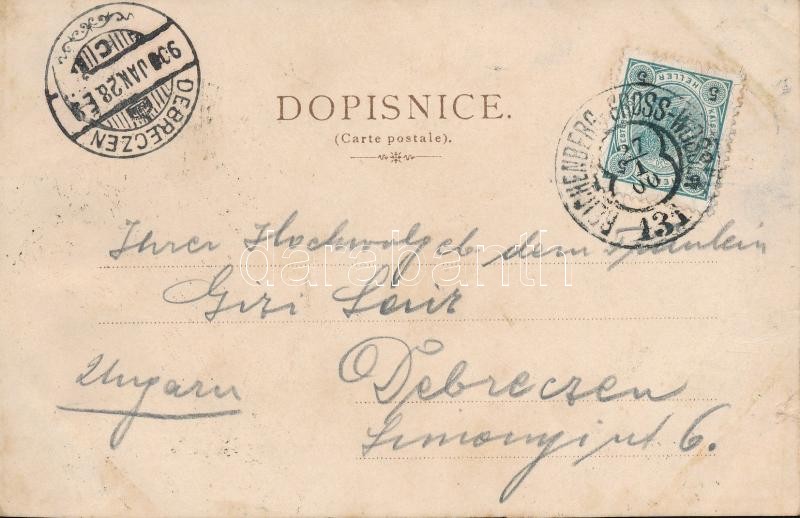 DEBRECZEN
900 JAN. 28. E
C
DOPISNICE.
(Carte postale).
5 HELLER 5
REICHENBERG-GROSS-WOSSEK
27
1
00
131
Ihrer Hochwolgeb dem Fräulein
Gizi
Ungarn
Debreczen
Simonyi ut 6.
darabanth